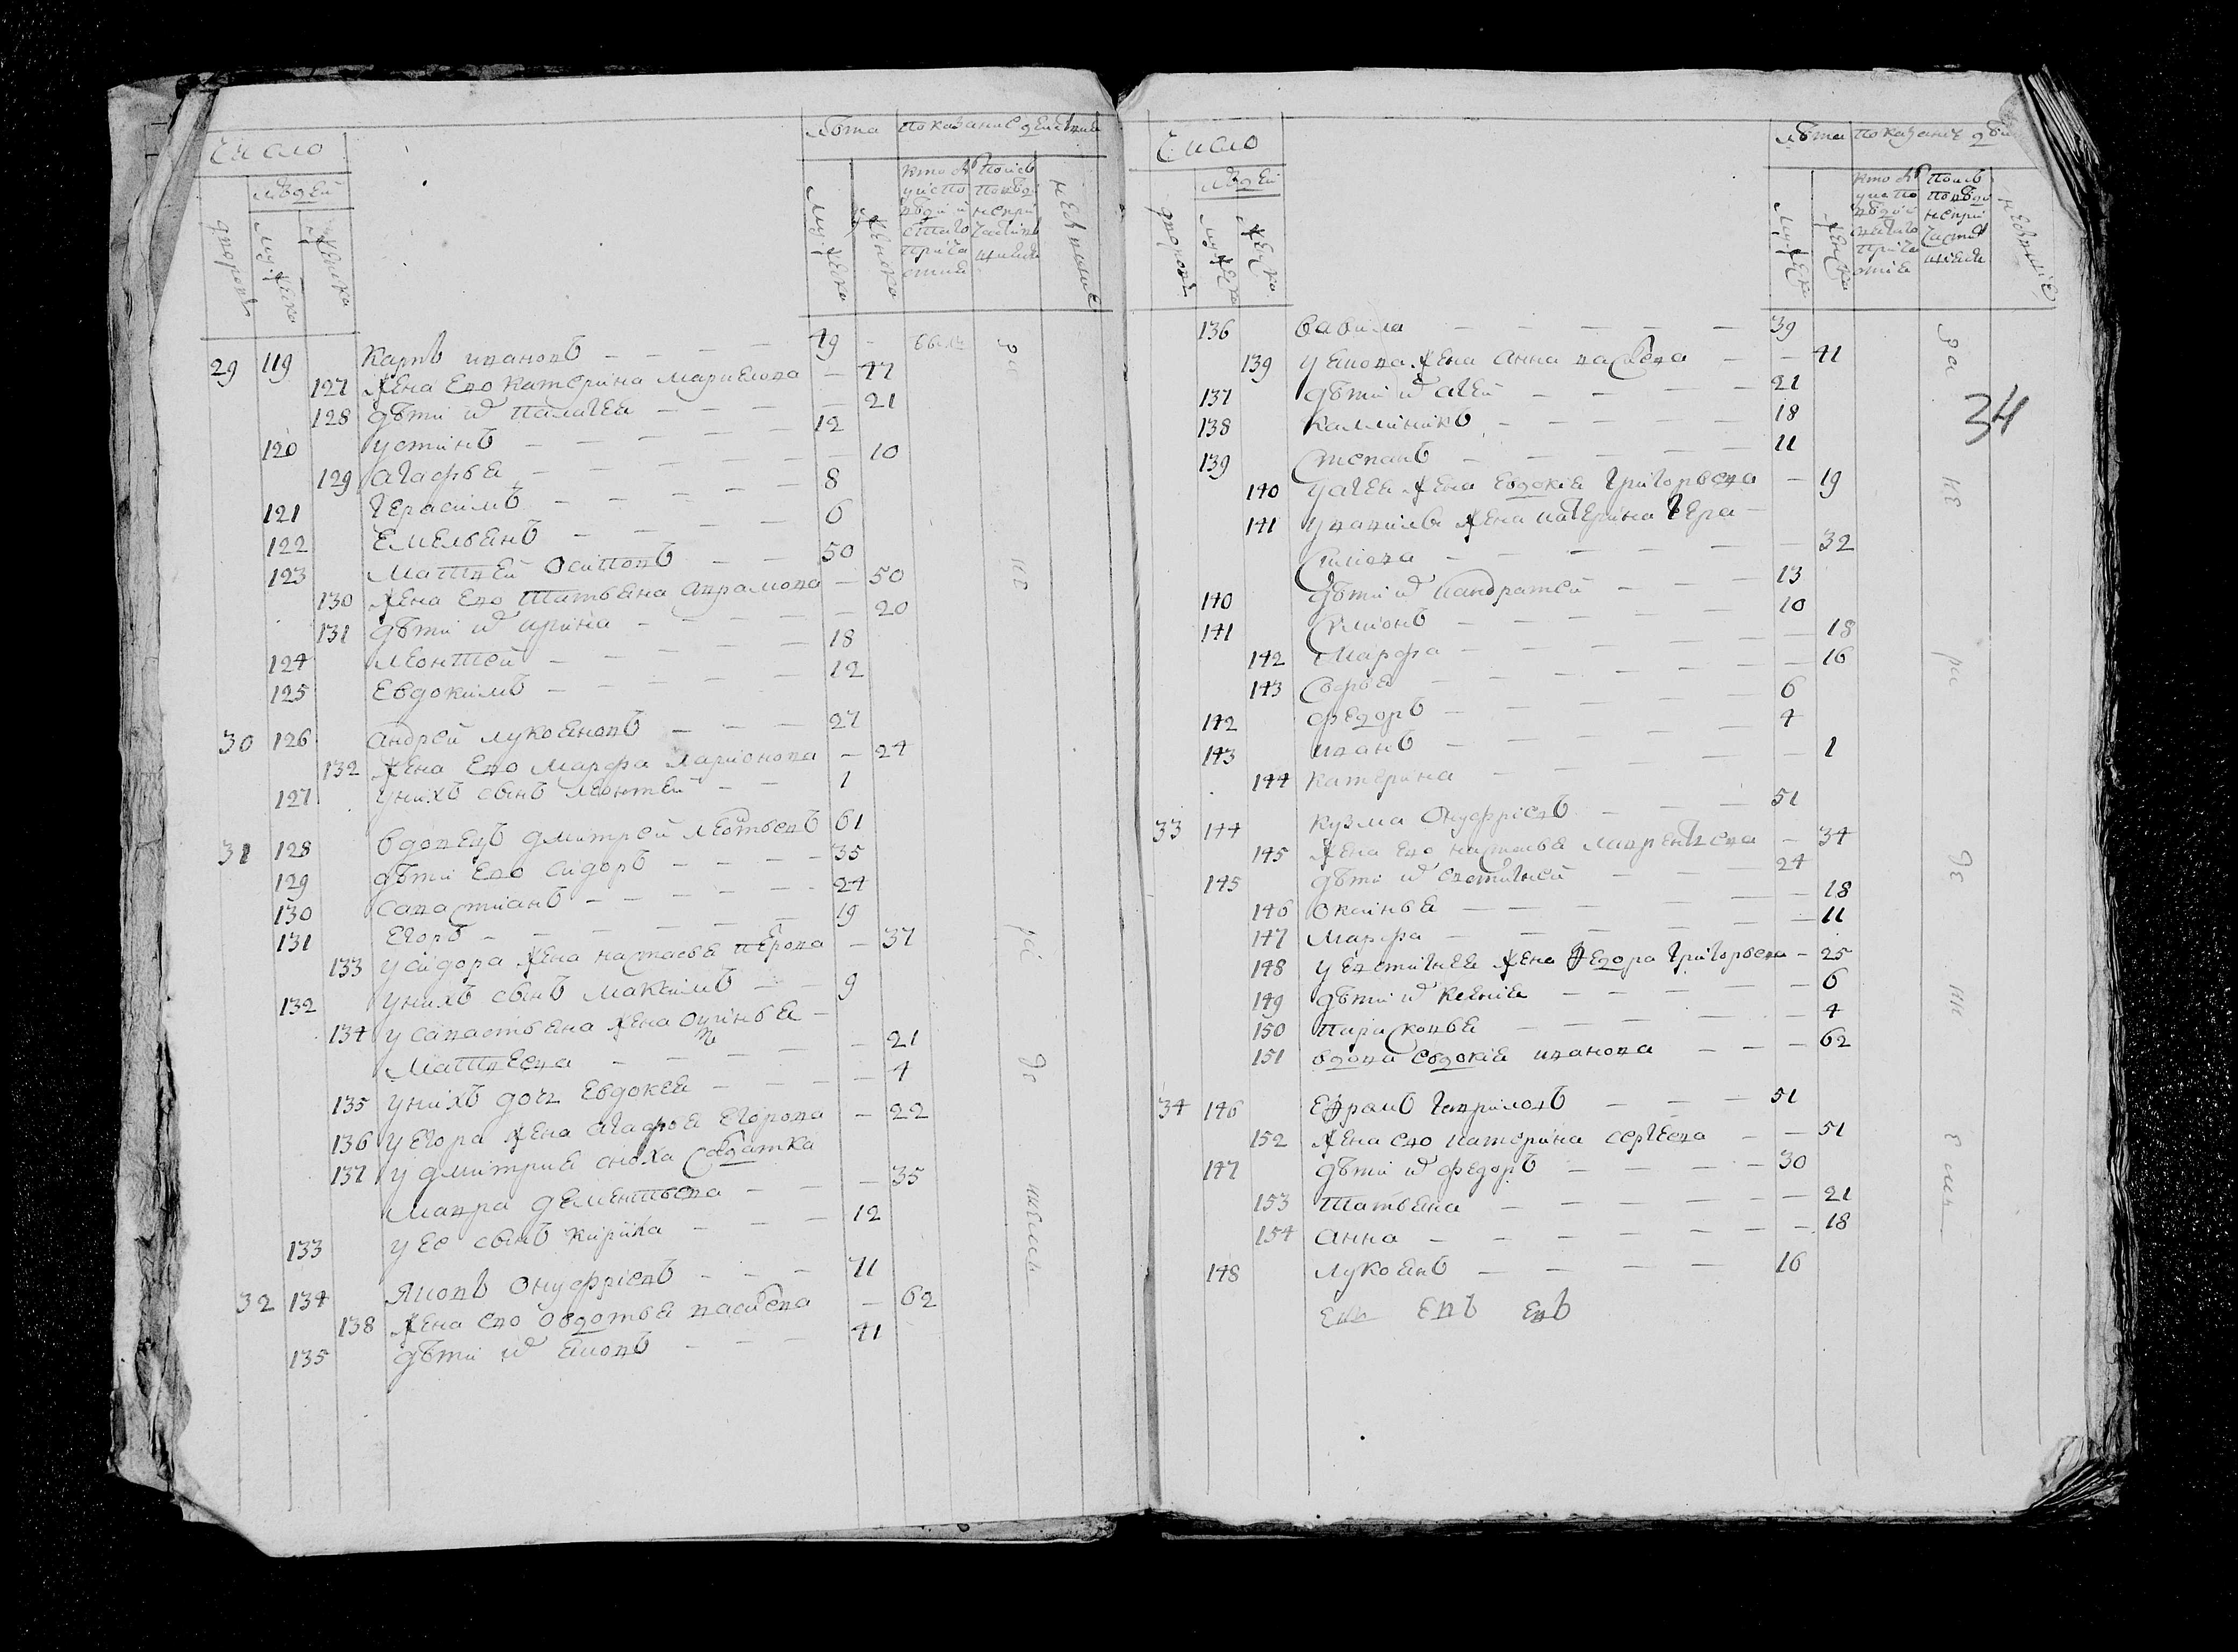 Число
людей
дворовъ
мужска
женска
лѣта
мужска
женска
показание действия
кто былъ
у испо
вѣди и
светаго
прича
стия
29 119 Карпъ ивановъ 49
127 жена ево катерина 47
128 дѣти их палагея 21
120 устинъ 12
129 агафья 10
121 герасимъ 8
122 Емельянъ 6
123 Матвей Осиповъ 50
130 жена ево татьяна аврамова 50
131 дѣти их арина 20
124 леонтей 18
125 Евдокимъ 12
30 126 андрей лукояновъ 27
132 жена ево марфа ларионова 24
127 у нихъ сынъ леонтей 1
31 128 вдовецъ дмитрей леотьевъ 61
129 дѣти ево сидоръ 35
130 савастианъ 24
131 егоръ 19
133 у сидора жена настасья 37
132 у нихъ сынъ максимъ 9
134 у савастьяна жена
Матвеева 21
135 у нихъ дочь Евдокея 4
136 у Егора жена агафья Егорова 22
137 у дмитрия сноха салдатка
мавра дементьева 35
133 у ее сынъ кирила 12
32 134 Яковъ Онуфриевъ 71
138 жена ево овдотья васильева 62
135 дѣти их яковъ 41
за не ра де ниемъ
Число
людей
дворовъ
мужска
женска
лѣта
показание
34
136 вавила 39
139 у якова жена анна васильева 41
137 дѣти их агей 21
138 каллиникъ 18
139 степанъ 11
140 у агея жена евдокия григорьева 19
141 у вавилы жена катерина гера
симова 32
140 дѣти их кандратей 13
141 симионъ 10
142 марфа 18
143 софья 16
142 федоръ 6
143 иванъ 4
144 катерина 1
33 144 кузма Онуфриевъ 51
145 жена ево настасья лаврентьева 34
145 дѣти их евстигней 24
146 оксинья 18
147 марфа 11
148 у евстигнея жена федора григорьева 25
149 дѣти их ксения 6
150 парасковья 4
151 вдова евдокия иванова 62
34 146 Ефремъ гавриловъ 51
152 жена ево катерина сергеева 51
147 дѣти их федоръ 30
153 татьяна 21
154 анна 18
148 лукоянъ 16
за не ра де ни емъ